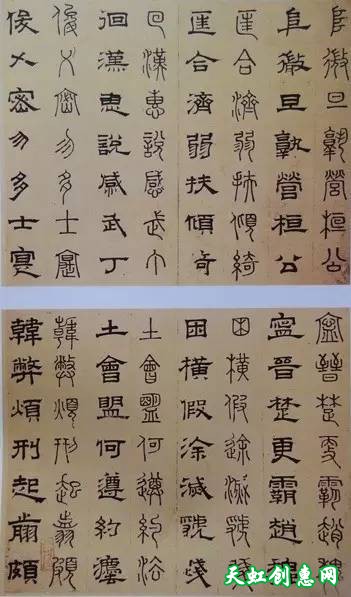 阜微旦孰營桓公
阜微旦孰營桓公
匡合濟弱扶傾綺
匡合濟弱扶傾奇
回漢惠說感武丁
徊漢惠說感武丁
俊乂密勿多士寔
俊乂密勿多士寔
寧晉楚更霸趙魏
寧晉楚更霸趙魏
困橫假途滅虢踐
困橫假涂滅虢踐
土會盟何遵約法
土會盟何遵約灋
韓弊煩刑起翦頗
韓弊煩刑起翦頗
天虹创意网